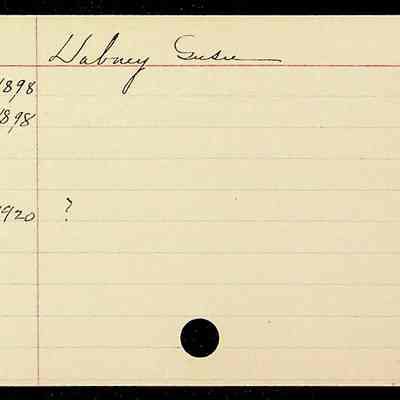 Dabney Susie
1898
1898
1920 ?